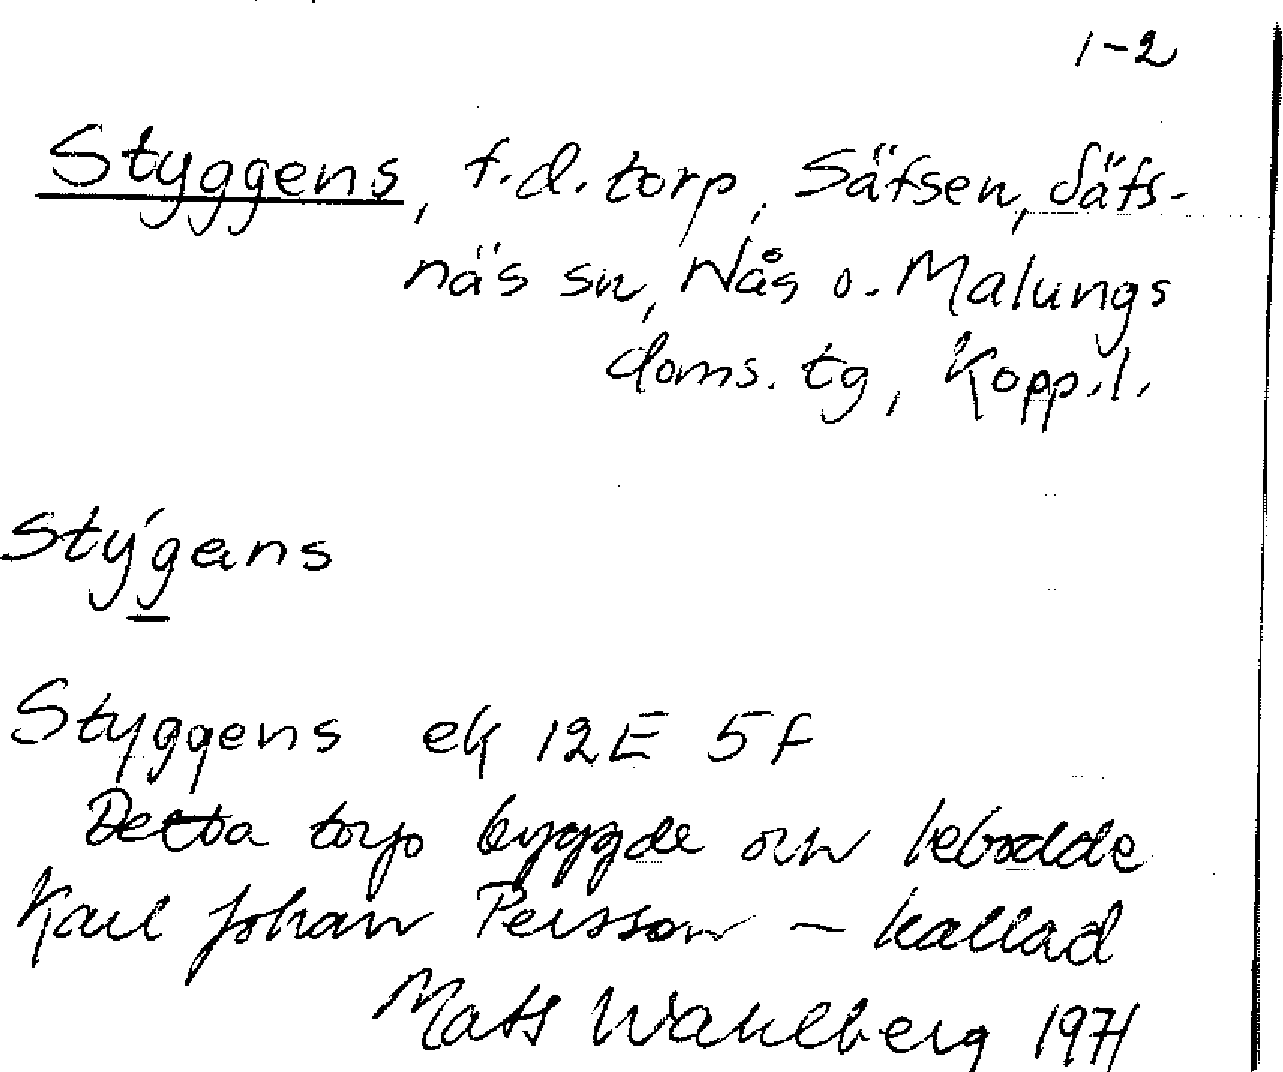 1-2
Styggens, f.d. torp, Säfsen, Säfs-
näs sn, Nås o. Malungs
doms. tg, Kopp.l.
Stýgans
Styggens ek 12E 5f
Detta torp byggde och bebodde
Karl Johan Persson – kallad
Mats Wahlberg 1971